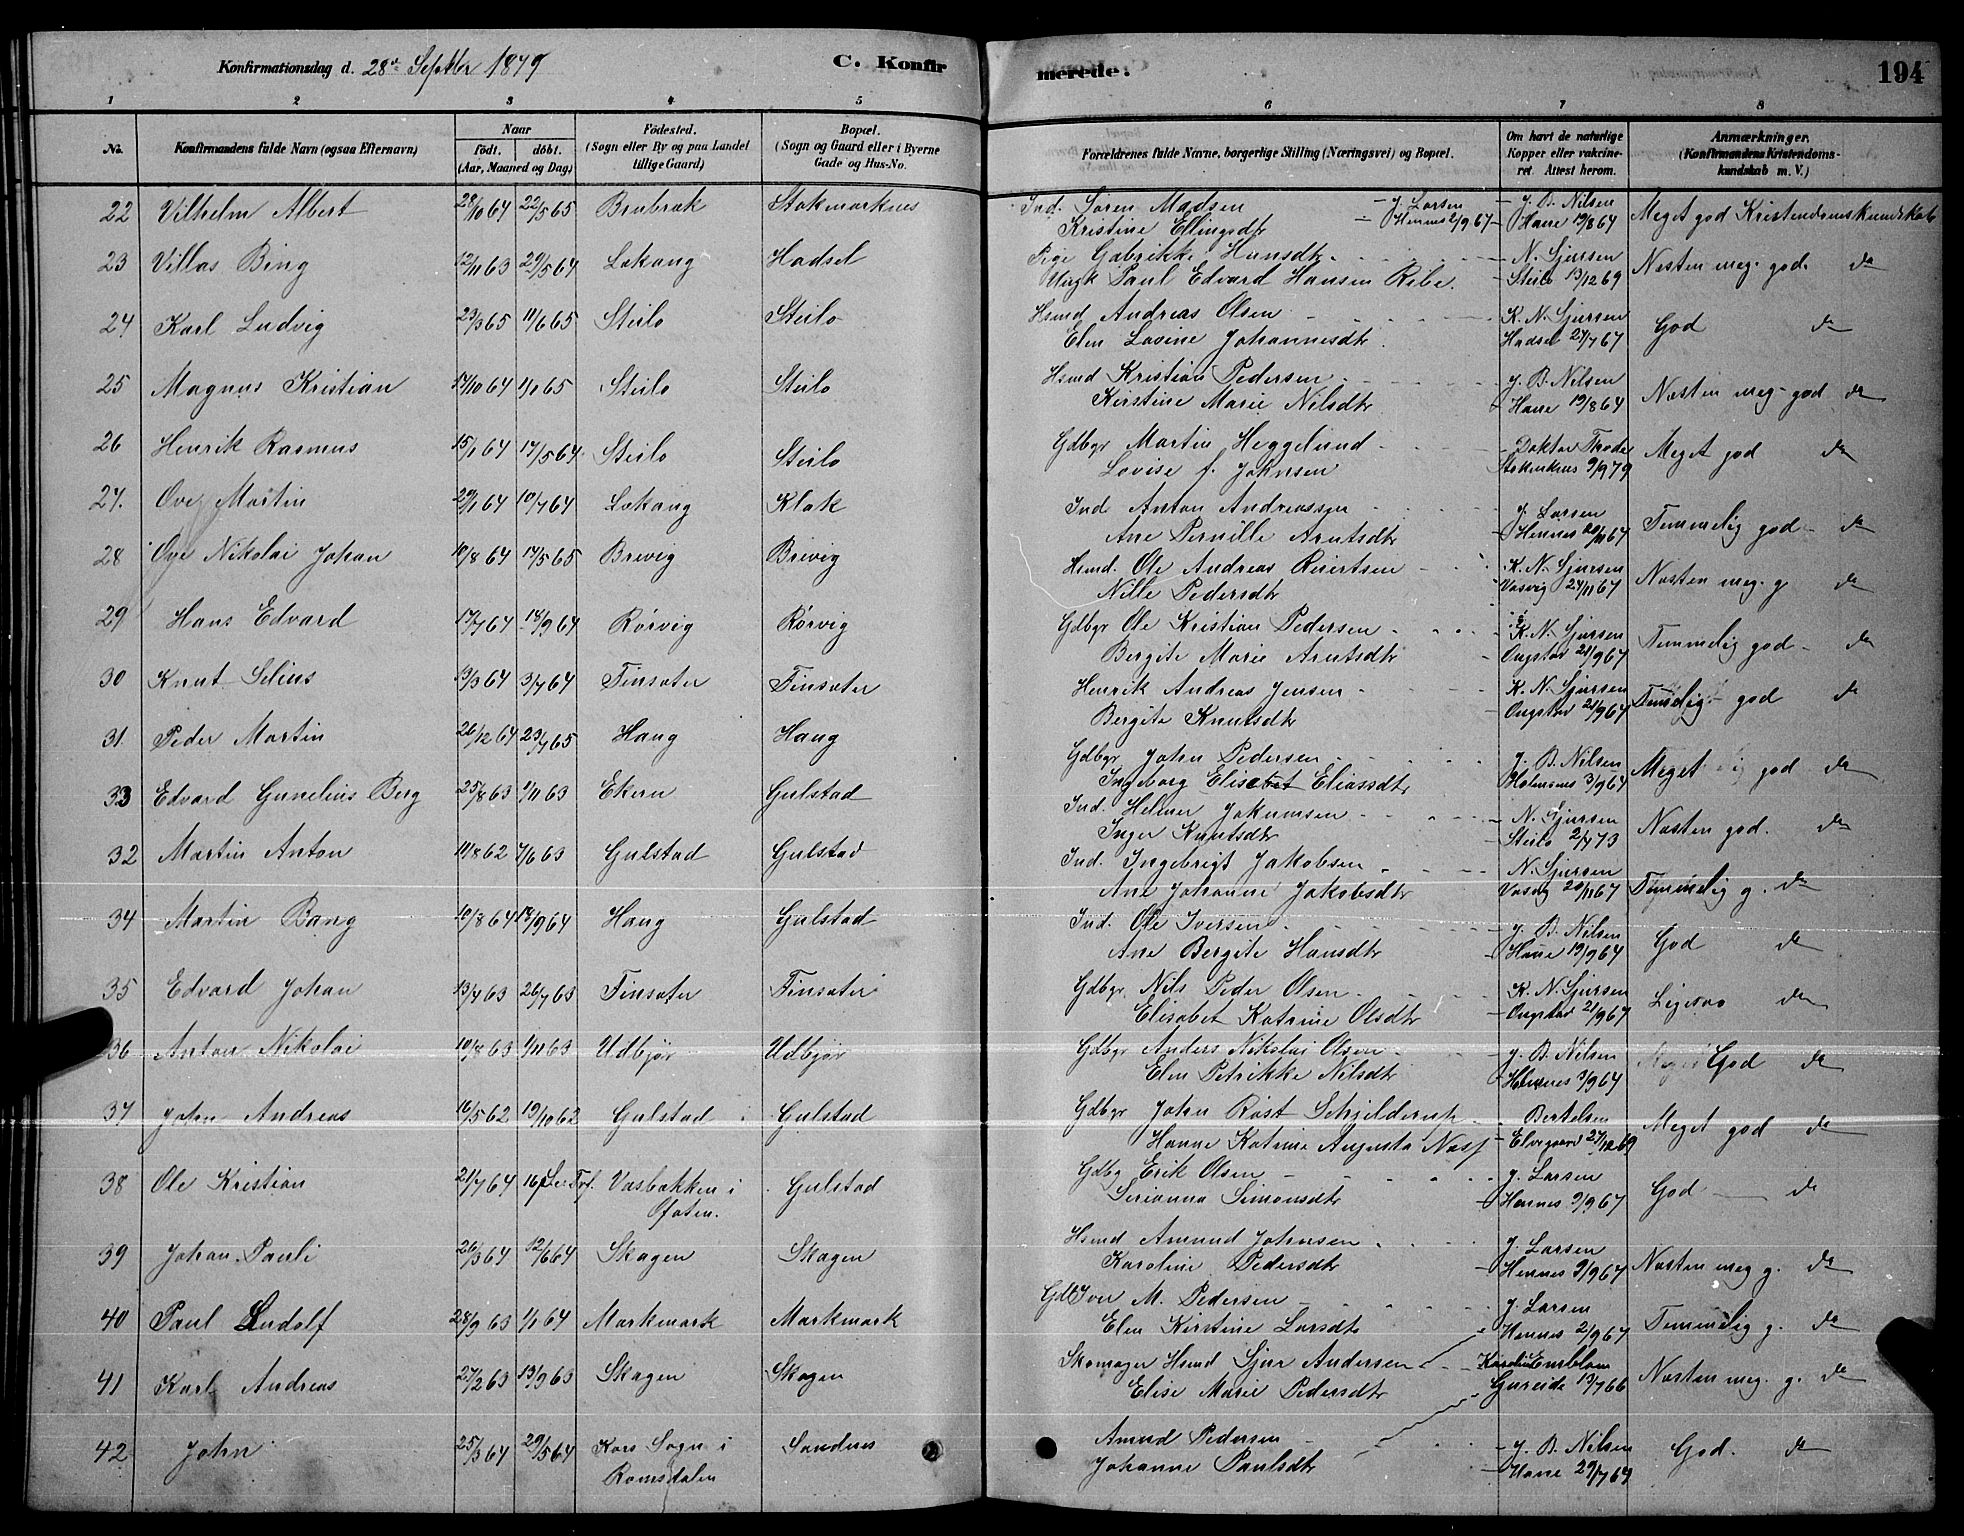 Konfirmationsdag d. 28de Septbr 1879
C. Konfirmerede.
194
1 2 3 4 5 6 7 8
No. Konfirmandens fulde Navn (ogsaa Efternavn) Naar født. døbt. (Aar, Maaned og Dag) Fødested. (Sogn eller By og paa Landet tillige Gaard) Bopæl. (Sogn og Gaard eller i Byerne Gade og Hus-No. Forældrenes fulde Navne, borgerlige Stilling (Næringsvei) og Bopæl. Om havt de naturlige Kopper eller vakcineret. Attest herom. Anmærkninger. (Konfirmandens Kristendomskundskab m. V.)
22 Vilhelm Albert 28/10 64 22/5 65 Brubræk Stokmarknes Ind. Søren Madsen J. Larsen J. B. Nilsen Meget god Kristendomskundskab
Kristine Ellingsdtr Hennes 2/9 67 Hane 19/8 64
23 Villas Bing 12/11 63 29/5 64 Lekang Hadsel Pige Gabrikke Hansdtr. N. Sjursen Næsten meg. god. do
Ungk Paul Edvard Hansen Ribe. Steilo 13/12 69
24 Karl Ludvig 23/3 65 11/6 65 Steilo Steilo Hsmd Andreas Olsen K. N. Sjursen God do
Elen Lovine Johannesdtr. Hadsel 27/7 67
25 Magnus Kristian 14/10 64 1/1 65 Steilo Steilo Hsmd Kristian Pedersen J. B. Nilsen Næsten meg. god do
Kirstine Marie Nilsdtr Hane 19/8 64
26 Henrik Rasmus 15/1 64 17/5 64 Steilo Steilo Gdbgr Martin Heggelund Doktor Thode Meget god do
Lovise f. Johnsen 9/9 79
27. Ove Martin 29/1 64 10/7 64 Lekang Klak Ind. Anton Andreassen J. Larsen Temmelig god do
Ane Pernille Arntsdtr Hennes 20/11 67
28 Ove Nikolai Johan 10/8 64 17/5 65 Brevig Brevig Hsmd. Ole Andreas Reiertsen K. N. Sjursen Næsten meg. g do
Nille Pedersdtr Vasvig 24/11 67
29 Hans Edvard 17/7 64 18/9 64 Rørvig Rørvig Gdbgr Ole Kristian Pedersen K. N. Sjursen Temmelig god do
Bergite Marie Arntsdtr Ongstad 21/9 67
30 Knut Selius 13/3 64 3/7 64 Finsæter Finsæter Henrik Andreas Jensen K. N. Sjursen Temelig god do
Bergite Knutsdtr Ongstad 21/9 67
31. Peder Martin 26/12 64 23/7 65 Haug Haug Gdbgr John Pedersen J. B. Nilsen Meget god do
Ingeborg Elisabet Eliassdtr Holmsnes 3/9 64
33 Edvard Gunelius Berg 25/8 63 1/11 63 Ekern Gulstad Ind. Helmer Jokumsen N. Sjursen Næsten god. do
Inger Knutsdtr Steilo 2/7 73
32 Martin Anton 11/8 62 7/6 63 Gulstad Gulstad Ind. Ingebrigt Jakobsen N. Sjursen Temmelig g. do
Ane Johanne Jakobsdtr Vasvig 20/11 67
34 Martin Bang 10/8 64 18/9 64 Haug Gulstad Ind. Ole Iversen J. B. Nilsen God do
Ane Bergite Hansdtr Hane 19/9 64
35 Edvard Johan 13/4 63 26/7 63 Finsæter Finsæter Gdbgr. Nils Peder Olsen K. N. Sjursen Ligesaa do
Elisabet Katrine Olsdtr Ongstad 21/9 67
36 Anton Nikolai 10/8 63 1/11 63 Udbjør Udbjør Gdbgr Anders Nikolai Olsen J. B. Nilsen God do
Elen Petrikke Nilsdtr Hennes 3/9 64
37 John Andreas 16/5 62 19/10 62 Gulstad Gulstad Gdbgr John Røst Schjelderup Bertelsen Meget god do
Hanne Katrine Augusta Næss Elvegaard 27/12 69
38 Ole Kristian 21/7 64 Vasbakken i Gulstad Gdbg Erik Olsen J. Larsen God do
Ofoten. Serianna Simonsdtr Hennes 9/9 67
39 Johan Pauli 26/3 64 12/6 64 Skagen Skagen Hsmd Amund Johnsen J. Larsen Næsten meg g. do
Karoline Pedersdtr Hennes 9/9 67
40 Paul Ludolf 28/9 63 1/1 64 Markmark Markmark Gdb Iver M. Pedersen J. Larsen Temmelig g. do
Elen Kirstine Larsdtr Hennes 2/9 67
41 Karl Andreas 27/2 63 13/9 63 Skagen Skagen Skomager Hsmd Sjur Andersen Karoline Emblem Næsten meg. g. do
Elise Marie Pedersdtr Gureide 13/7 66
42 John 25/3 64 29/5 64 Kors Sogn i Sandnes Amund Pedersen J. B. Nilsen God. do
Romsdalen Johanne Paulsdtr Hane 29/7 64